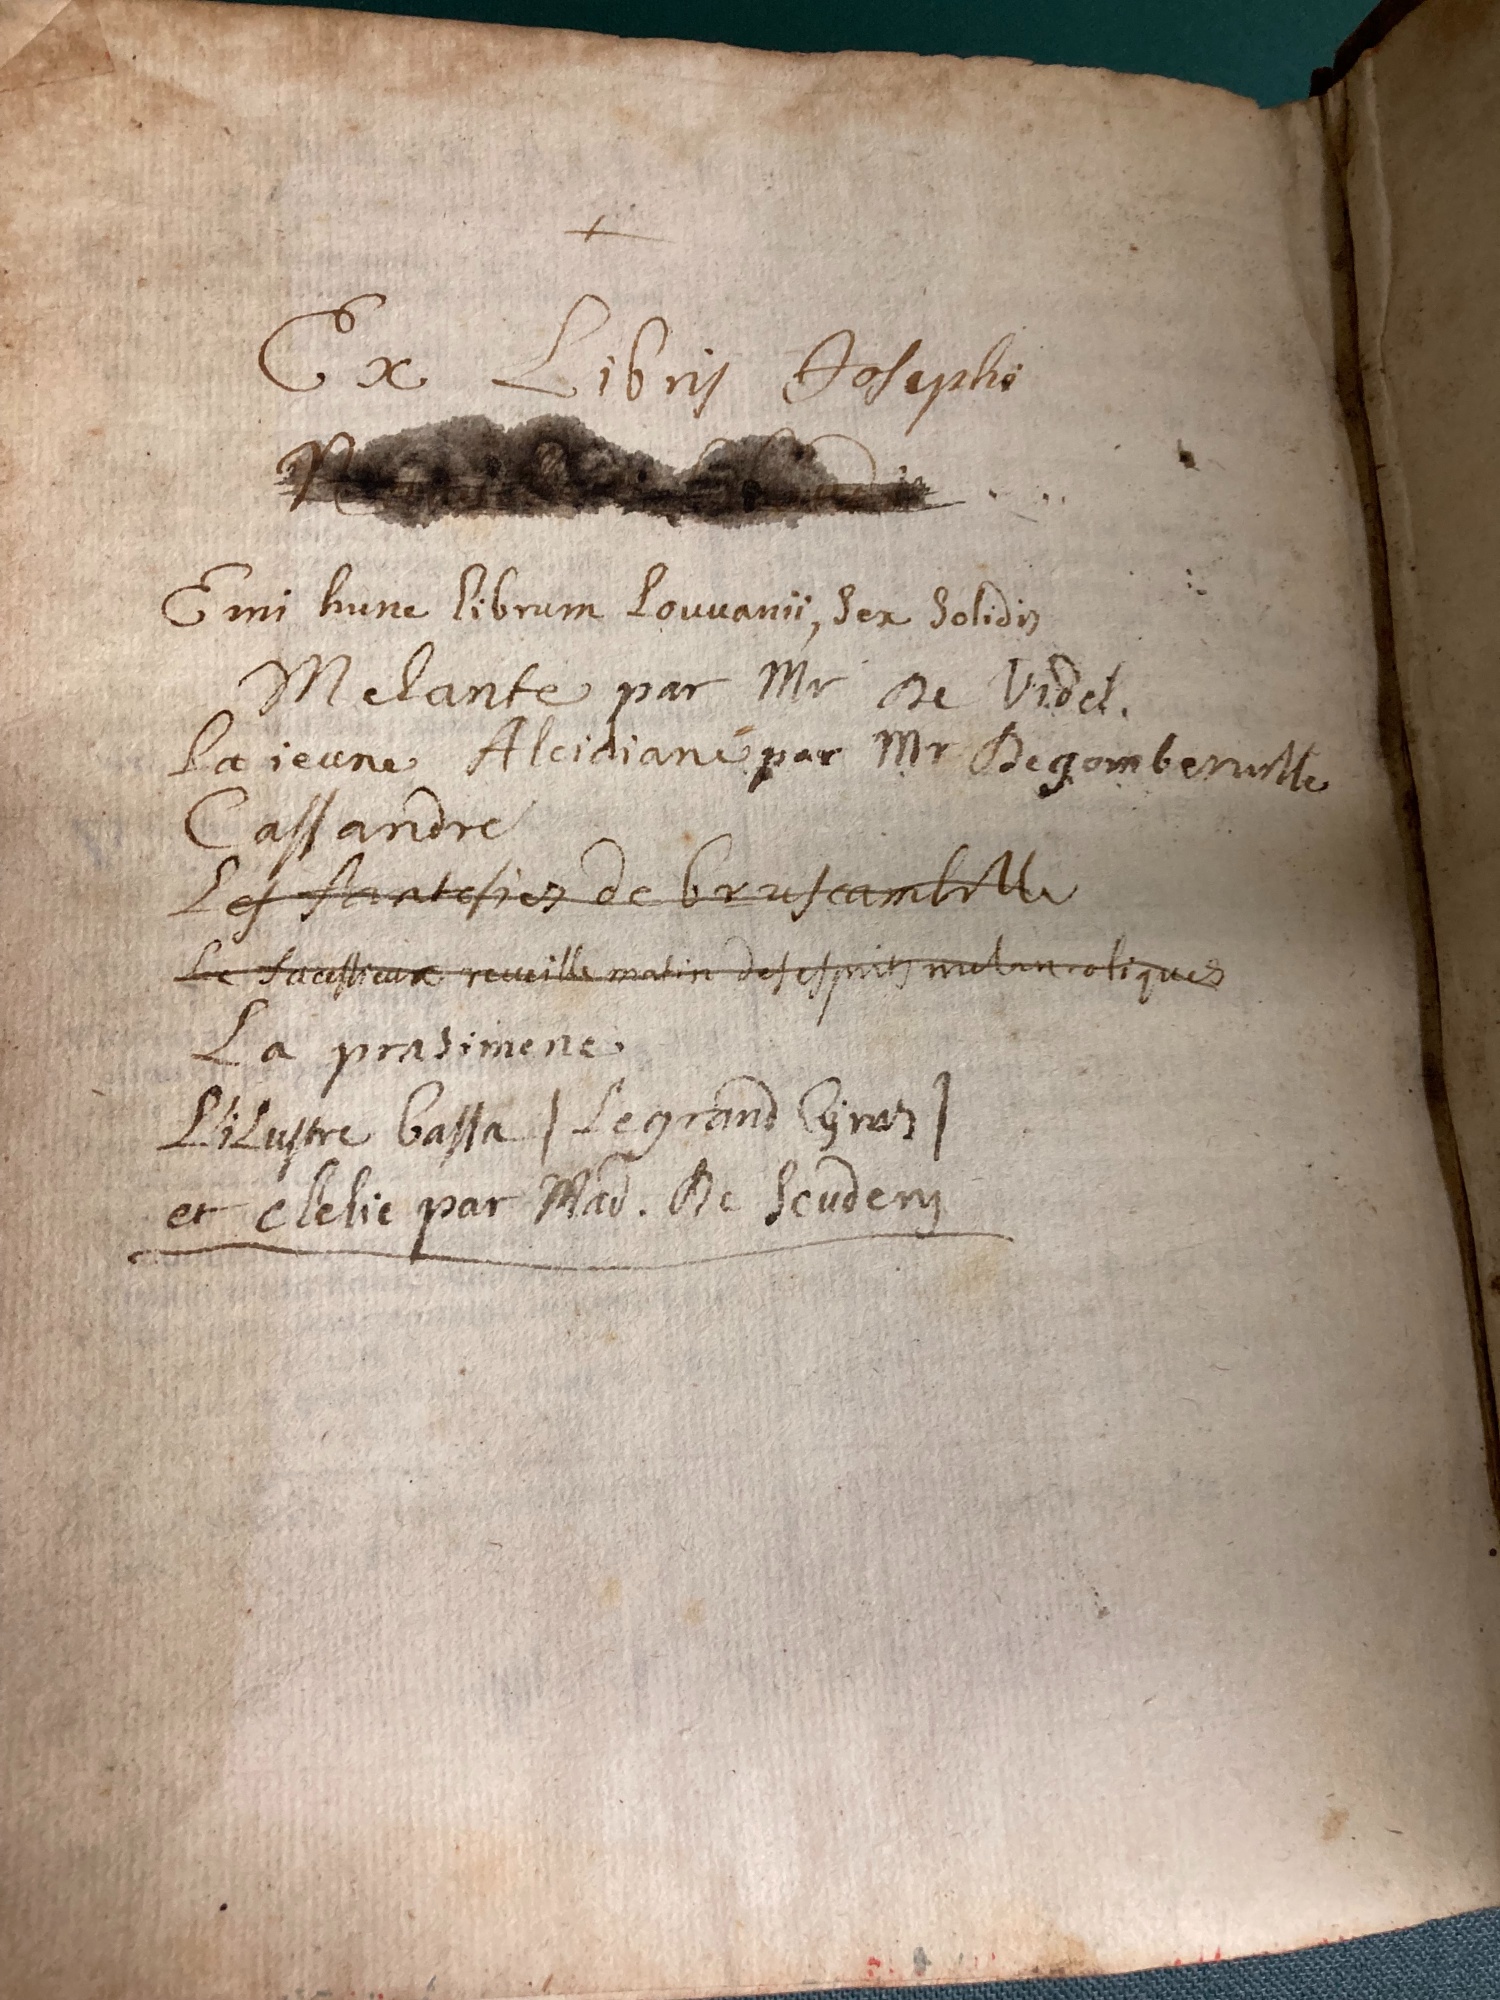 +
Ex Libris Josephi
Emi hunc librum Louuanii, sex solidis
Melante par Mr De Videl.
La ieune Alcidiane par Mr De gomberuille
Cassandre
Les fantesies de bruscambille
Le facessieux reueille matin des esprits melancoliques
La prasimene
L'ilustre bassa / Le grand Cyrus /
et clelie par Mad. De Scudery